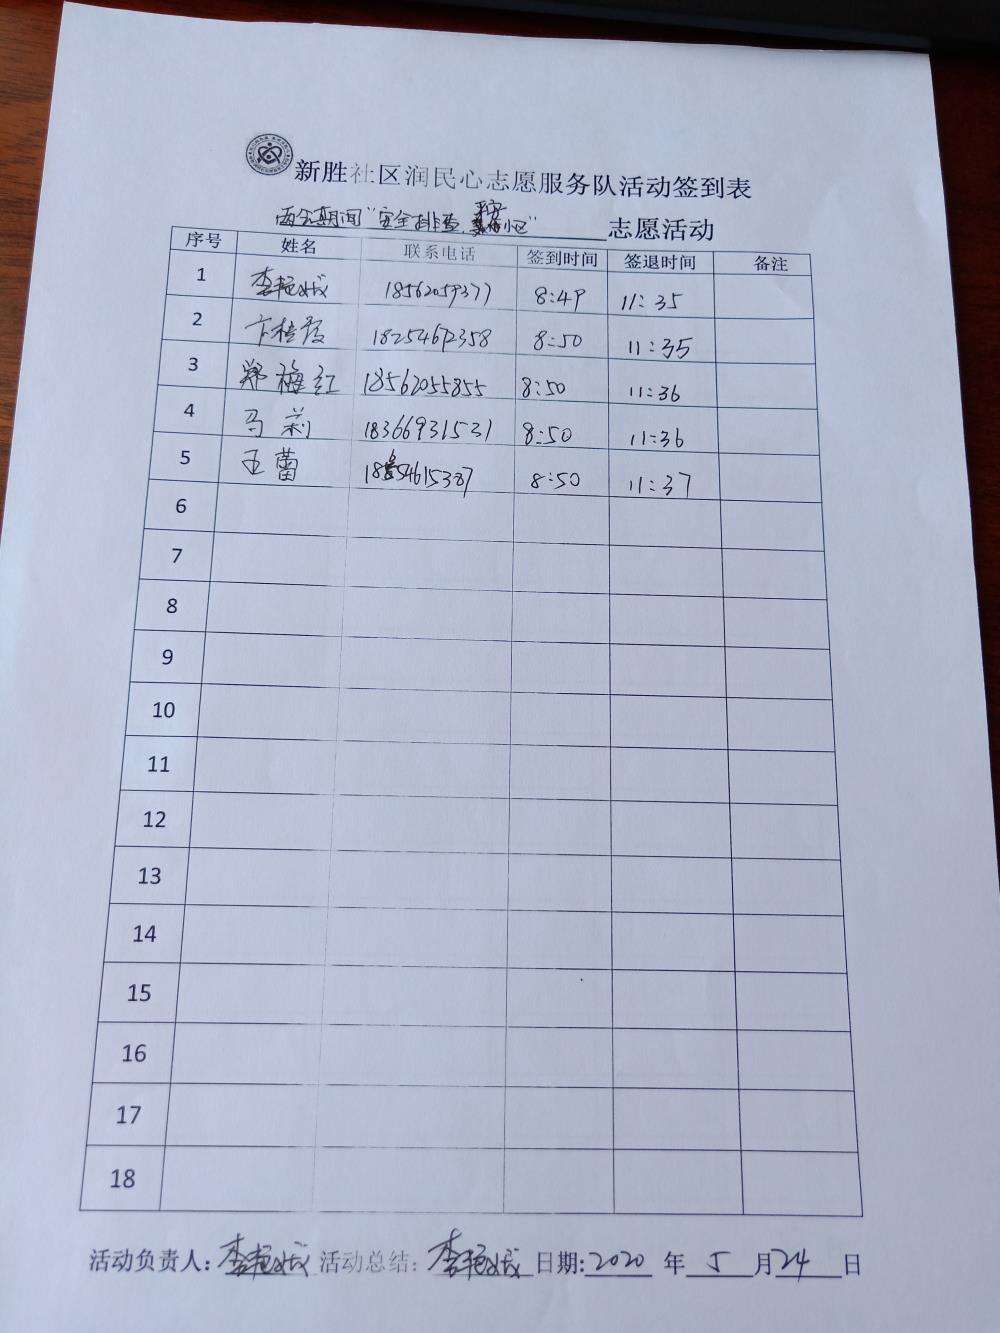 新胜社区润民心志愿服务队活动签到表
两会期间"安全排查,平安小区" 志愿活动
序号 姓名 联系电话 签到时间 签退时间 备注
1 李艳娥 18562059377 8:49 11:35
2 卞桂霞 18254612358 8:50 11:35
3 郑梅红 18562055855 8:50 11:36
4 马莉 18366931531 8:50 11:36
5 王蕾 8:50 11:37
6
7
8
9
10
11
12
13
14
15
16
17
18
活动负责人:李艳娥 活动总结:李艳娥 日期:2020 年 5 月24 日